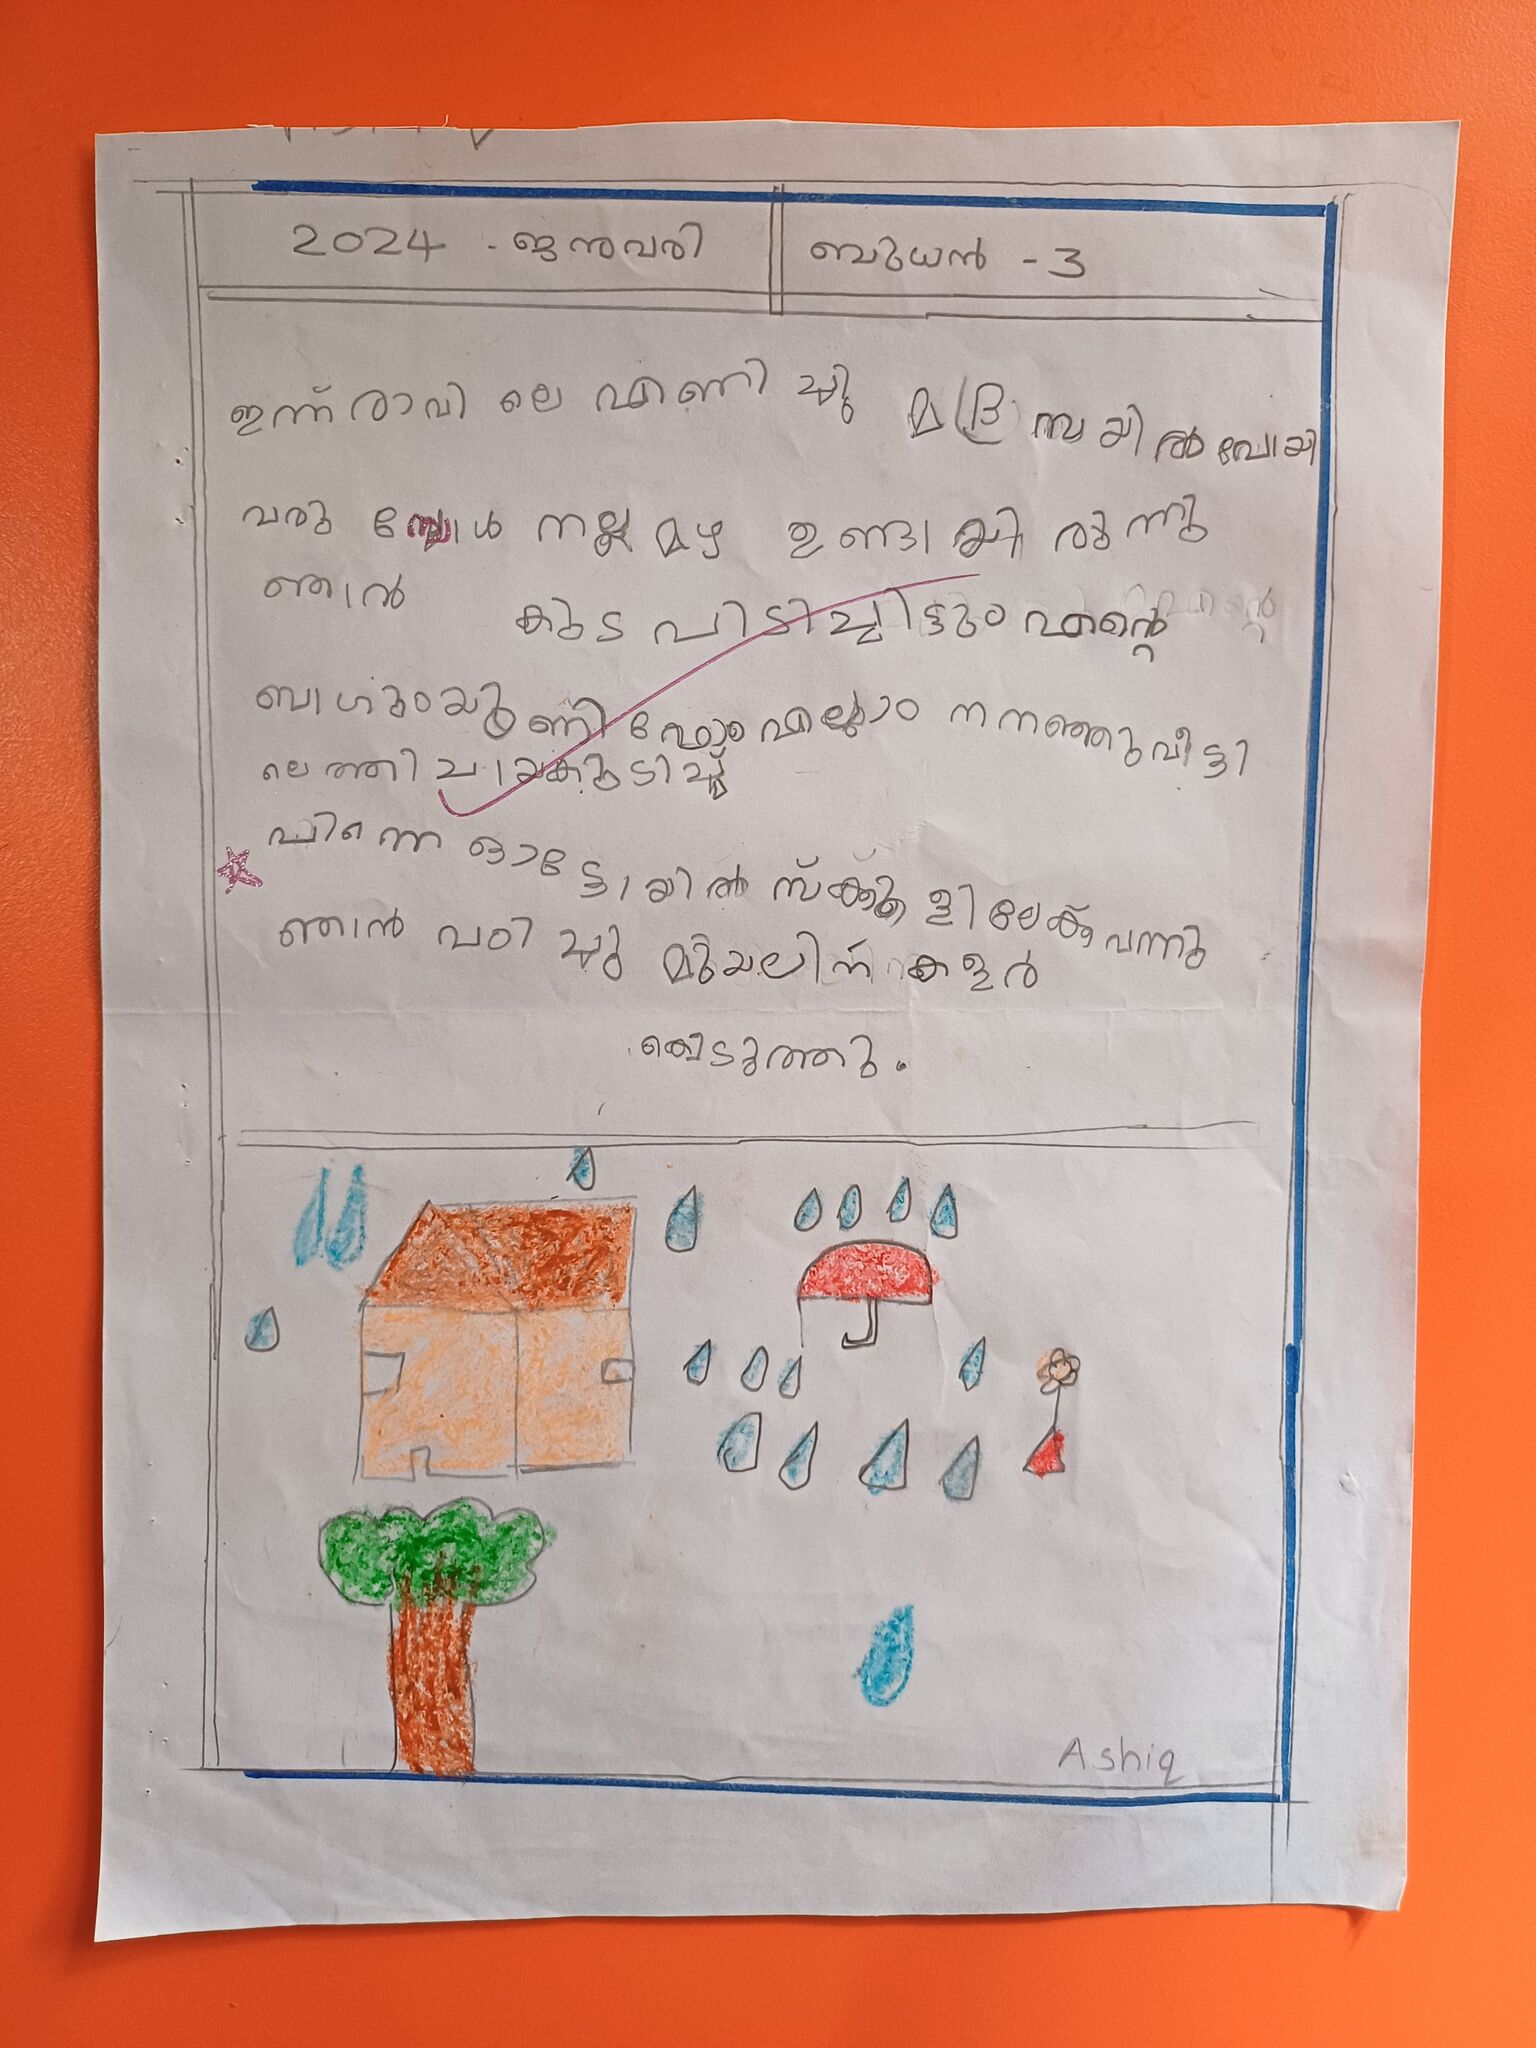 2024 - ജനുവരി
ബുധൻ - 3
ഇന്ന് രാവിലെ എണിച്ചു മദ്രസയിൽ പോയി
വരുമ്പോൾ നല്ല മഴ ഉണ്ടായിരുന്നു
ഞാൻ കുട പിടിച്ചിട്ടും എന്റെ
ബാഗും യുണിഫോം എല്ലാം നനഞ്ഞു വീട്ടി
ലെത്തി ചായകുടിച്ചു
പിന്നെ ഓട്ടോയിൽ സ്ക്കൂളിലേക്ക് വന്നു
ഞാൻ പഠിച്ചു മുയലിന് കളർ
കൊടുത്തു.
Ashiq